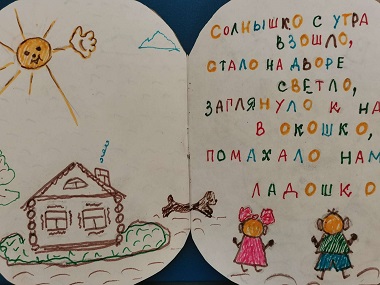 СОЛНЫШКО С УТРА
ВЗОШЛО,
СТАЛО НА ДВОРЕ
СВЕТЛО,
ЗАГЛЯНУЛО К НА
В ОКОШКО,
ПОМАХАЛО НАМ
ЛАДОШКО